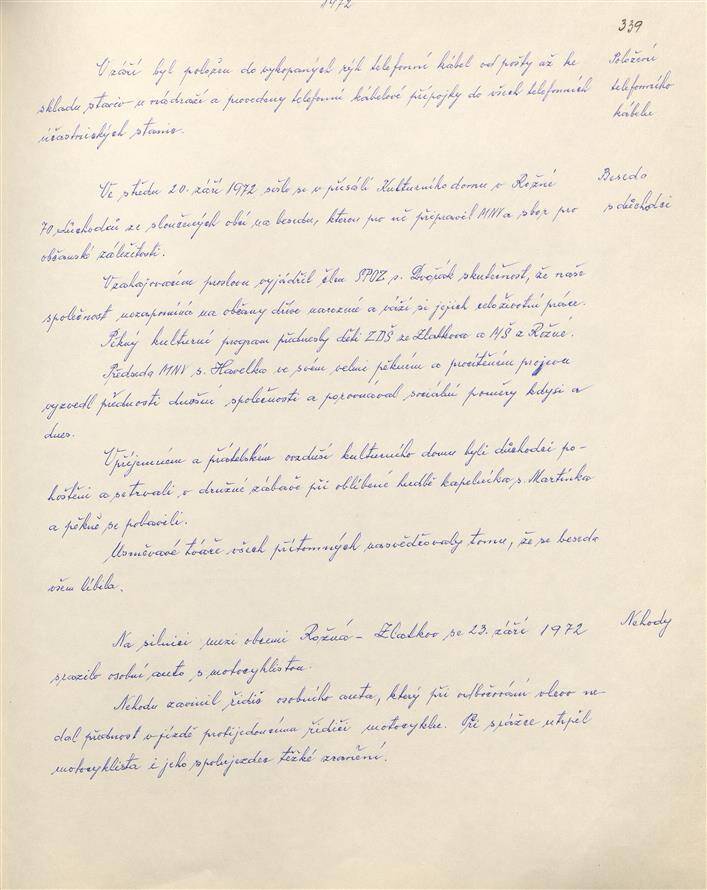 1972
339
V září byl položen do vykopaných rýh telefonní kábel od pošty až ke
skladu staviv u nádraží a provedeny telefonní kábelové přípojky do všech telefonních
účastnických stanic.
Položení
telefonního
kábelu
Ve středu 20. září 1972 sešlo se v přísálí Kulturního domu v Rožné
70 důchodců ze sloučených obcí na besedu, kterou pro ně připravil MNV a sbor pro
občanské záležitosti.
Beseda
s důchodci
V zahajovacím proslovu vyjádřil člen SPOZ s. Dvořák skutečnost, že naše
společnost nezapomíná na občany dříve narozené a váží si jejich celoživotní práce.
Pěkný kulturní program přednesly děti ZDŠ ze Zlatkova a MŠ z Rožné.
Předseda MNV s. Havelka ve svém velmi pěkném a procítěném projevu
vyzvedl přednosti dnešní společnosti a porovnával sociální poměry kdysi a
dnes.
V příjemném a přátelském ovzduší kulturního domu byli důchodci po-
hoštěni a setrvali v družné zábavě při oblíbené hudbě kapelníka s. Martínka
a pěkně se pobavili.
Usměvavé tváře všech přítomných nasvědčovaly tomu, že se beseda
všem líbila.
Na silnici mezi obcemi Rožná - Zlatkov se 23. září 1972
srazilo osobní auto s motocyklistou.
Nehody
Nehodu zavinil řidič osobního auta, který při odbočování vlevo ne-
dal přednost v jízdě protijedoucímu řidiči motocyklu. Při srážce utrpěl
motocyklista i jeho spolujezdec těžké zranění.